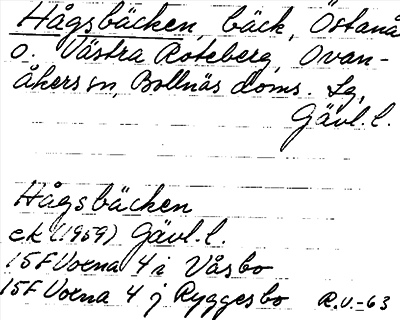 Hågsbäcken, bäck, Östanå
o. Västra Roteberg, Ovan-
åkers sn, Bollnäs doms. Lg,
Gävl. l.
Hågsbäcken
ek (1959) Gävl. l.
15F Voxna 4 i Våsbo
15F Voxna 4 j Ryggesbo R.U.-63